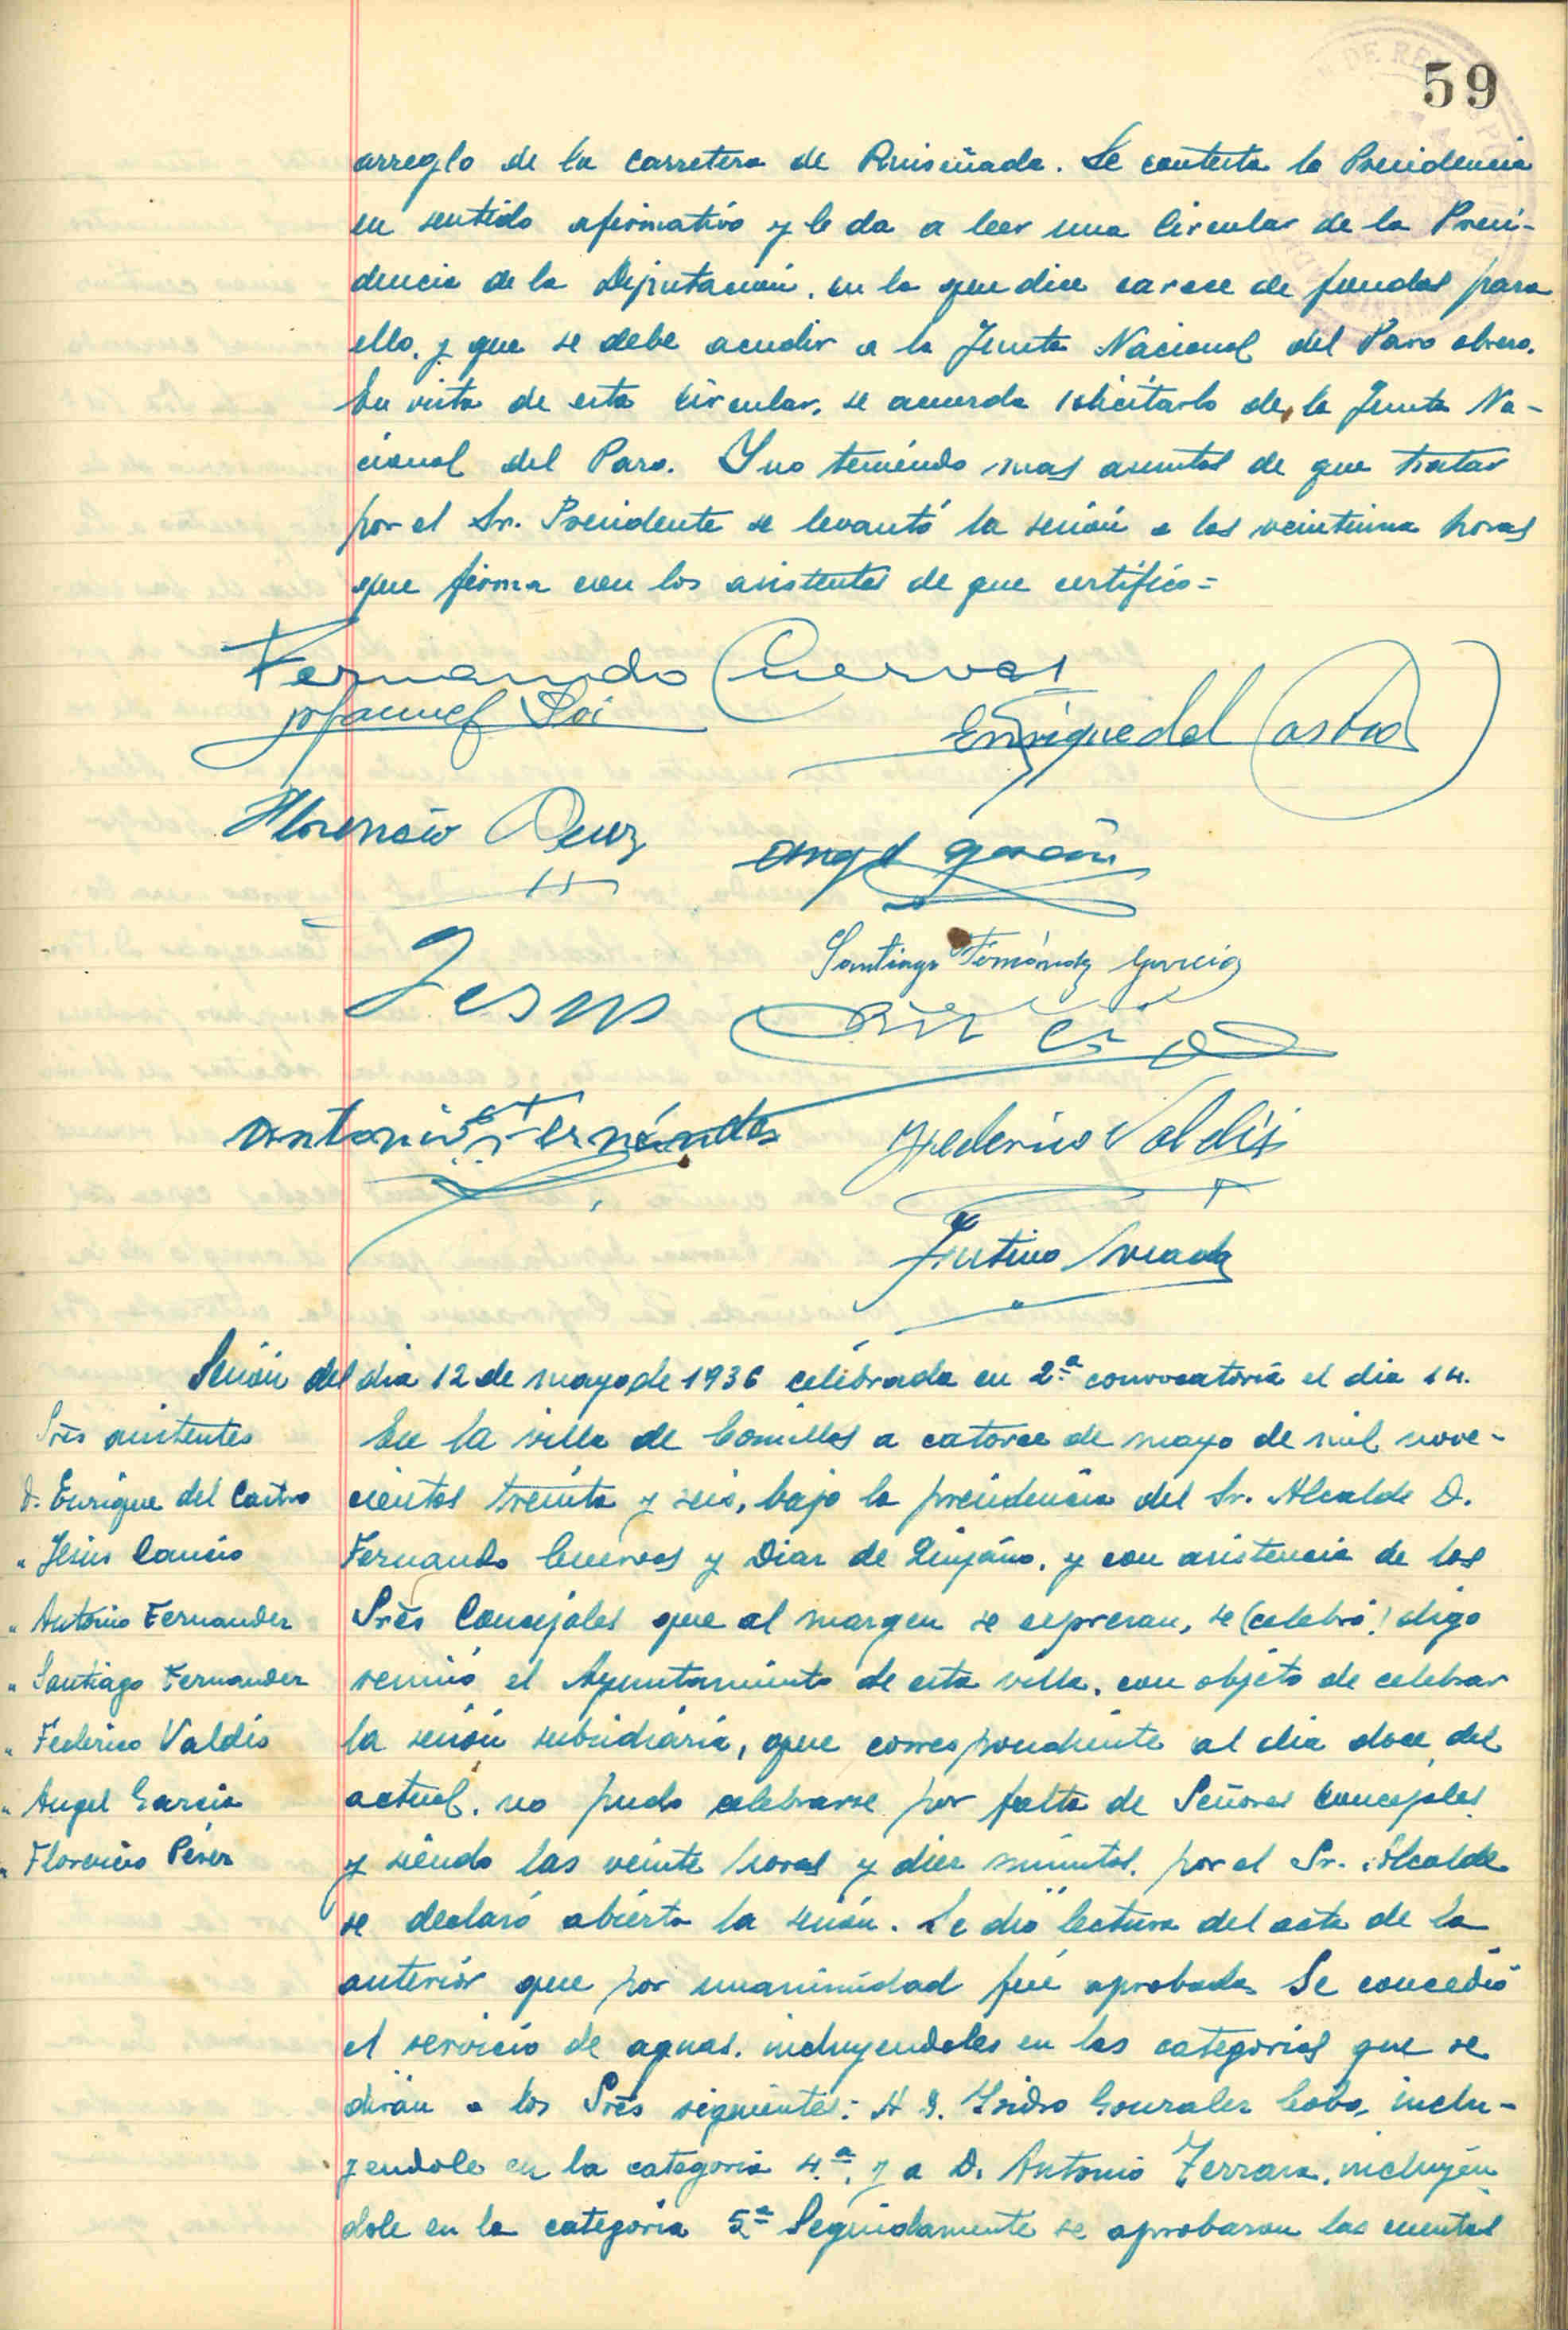 59
arreglo de la carretera de Ruiseñada. Le contesta la Presidencia
en sentido afirmativo y le da a leer una Circular de la Presi-
dencia de la Diputación, en la que dice carece de fondos para
ello, y que se debe acudir a la Junta Nacional del Paro obrero.
En vista de esta circular, se acuerda solicitarlo de la Junta Na-
cional del Paro. Y no teniendo mas asuntos de que tratar
por el Sr. Presidente se levantó la sesión a las veintiuna horas
que firma con los asistentes de que certifico=
Fernando Cuervas
Manuel
Enrique del Castro
Florencio Perez
Angel Garcia
Santiago Fernández Garcia
Jesus Cancio
Antonio Fernández
Federico Valdés
Sesión del dia 12 de mayo de 1936 celebrada en 2ª convocatoria el dia 14.
Srês asistentes
D. Enrique del Castro
" Jesús Cancio
" Antonio Fernandez
" Santiago Fernandez
" Federico Valdés
" Angel Garcia
" Florencio Pérez
En la villa de Comillas a catorce de mayo de mil nove-
cientos treinta y seis, bajo la presidencia del Sr. Alcalde D.
Fernando Cuervas y Diaz de Quijano, y con asistencia de los
Srês Concejales que al margen se expresan, se (celebró) digo
reunió el Ayuntamiento de esta villa, con objeto de celebrar
la sesión subsidiaria, que correspondiente al dia doce del
actual, no pudo celebrarse por falta de Señores Concejales
y siendo las veinte horas y diez minutos, por el Sr. Alcalde
se declaró abierta la sesión. Se dió lectura del acta de la
anterior que por unanimidad fué aprobada Se concedió
el servicio de aguas, incluyendoles en las categorias que se
dirán a los Srês siguientes: A D. Ysidro Gonzalez Cobo, inclu-
yendole en la categoria 4.ª, y a D. Antonio Ferrara, incluyen
dole en la categoria 5ª Seguidamente se aprobaron las cuentas